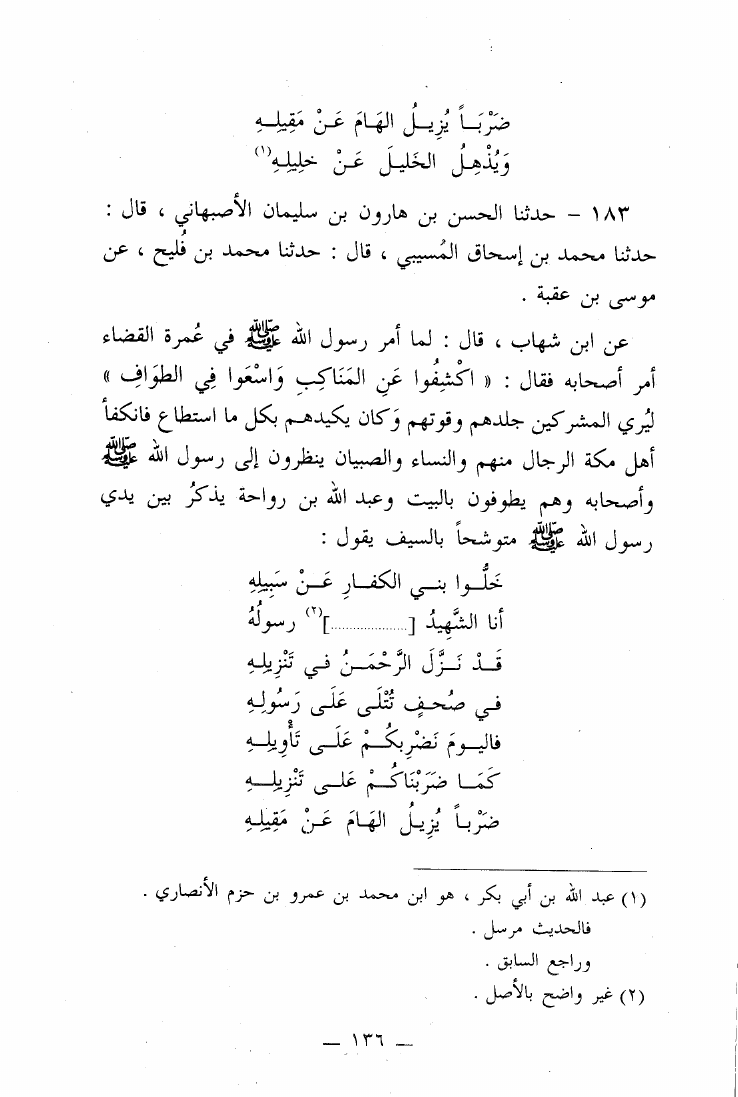 ضَرْبَاً يُزِيلُ الهَامَ عَنْ مَقِيلِهِ
وَيُذْهِلُ الخَلِيلَ عَنْ خلِيلِهِ(١)
١٨٣ - حدثنا الحسن بن هارون بن سليمان الأصبهاني ، قال :
حدثنا محمد بن إسحاق المُسيبي ، قال : حدثنا محمد بن فُليح ، عن
موسى بن عقبة .
عن ابن شهاب ، قال : لما أمر رسول الله ﷺ في عُمرة القضاء
أمر أصحابه فقال : « اكْشِفُوا عَنِ المَنَاكِبِ وَاسْعَوا فِي الطوَافِ »
ليُري المشركين جلدهم وقوتهم وَكان يكيدهم بكل ما استطاع فانكفأ
أهل مكة الرجال منهم والنساء والصبيان ينظرون إلى رسول الله ﷺ
وأصحابه وهم يطوفون بالبيت وعبد الله بن رواحة يذكرُ بين يدي
رسول الله ﷺ متوشحاً بالسيف يقول :
خَلُّوا بني الكفارِ عَنْ سَبِيلِهِ
أنا الشَّهِيدُ [..................](٢) رسولُهُ
قَدْ نَزَّلَ الرَّحْمَنُ في تَنْزِيلِهِ
في صُحفٍ تُتْلَى عَلَى رَسُولِهِ
فاليومَ نَضْرِبكُمْ عَلَى تَأْوِيلِهِ
كَمَا ضَرَبْنَاكُمْ عَلى تَنْزِيلِهِ
ضَرْباً يُزِيلُ الهَامَ عَنْ مَقِيلِهِ
(١) عبد الله بن أبي بكر ، هو ابن محمد بن عمرو بن حزم الأنصاري .
فالحديث مرسل .
وراجع السابق .
(٢) غير واضح بالأصل .
— ١٣٦ —